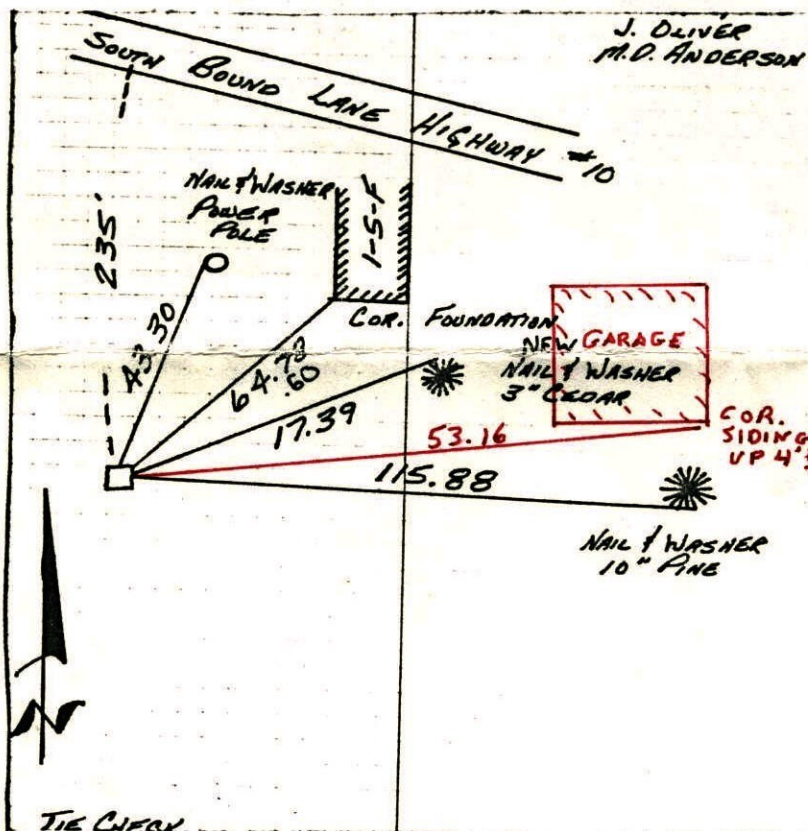 J. OLIVER
M.D. ANDERSON
SOUTH BOUND LANE HIGHWAY #10
235'
NAIL & WASHER
POWER
POLE
1-S-F
43.30
COR. FOUNDATION
64.73
.60
NEW GARAGE
NAIL & WASHER
3" CEDAR
17.39
53.16
COR.
SIDING
UP 4'±
115.88
NAIL & WASHER
10" PINE
N
TIE CHECK